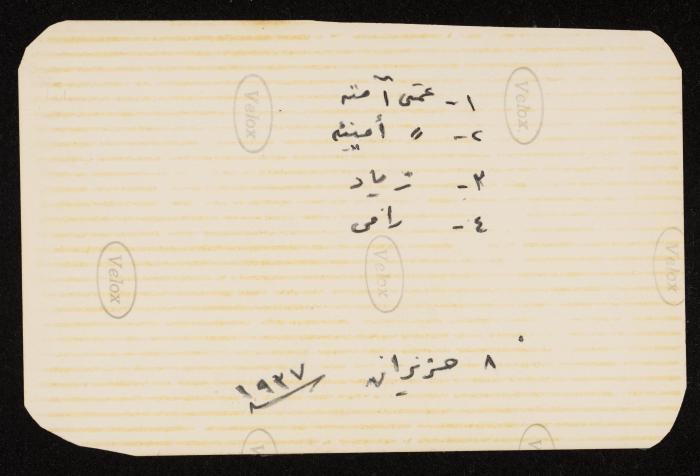 ١- عمتي آمنه
٢- " أمينه
٣- زياد
٤- رامي
٨ حزيران ١٩٣٧
Velox
Velox
Velox
Velox
Velox